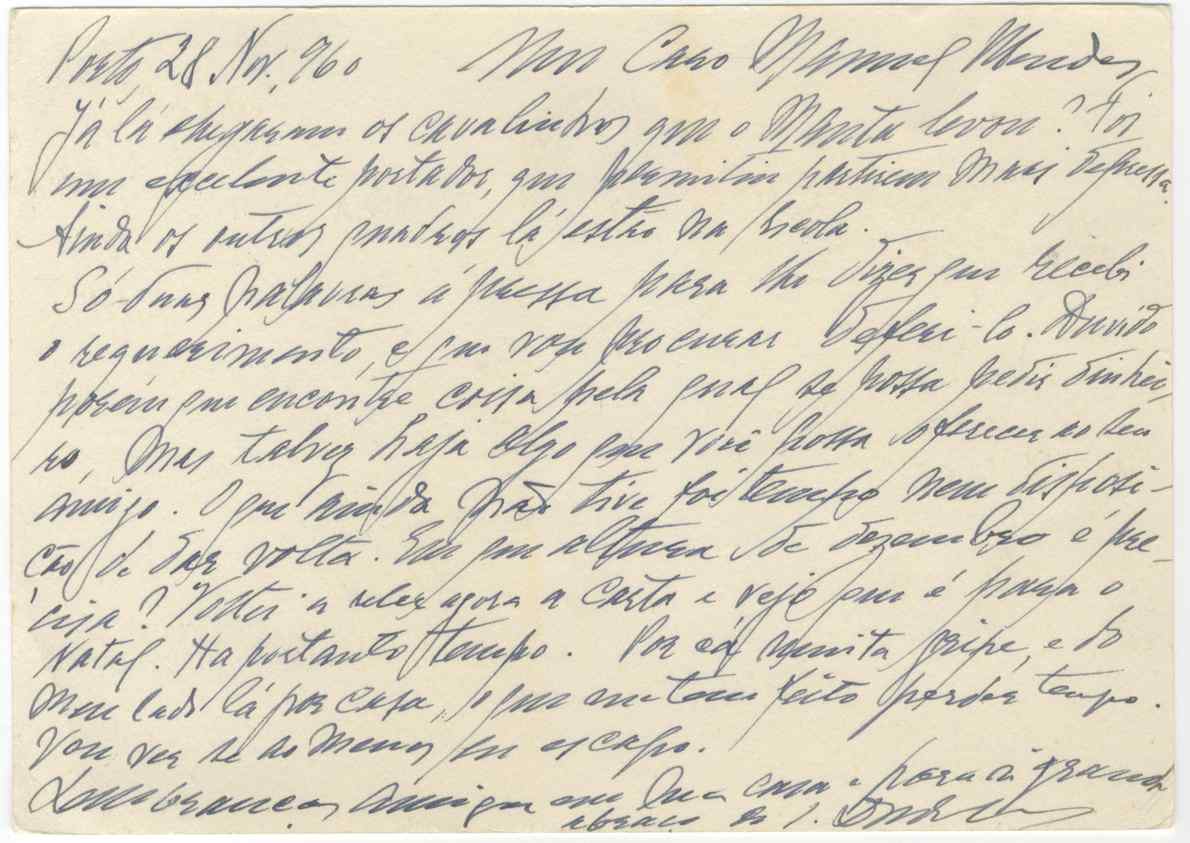 Porto, 28 Nov. 960 Meu Caro Manuel Mendes,
Já lá chegaram os cavalinhos que o Manta levou? Foi
um excelente portador, que permitiu partirem mais depressa.
Ainda os outros quadros lá estão na Escola.
Só duas palavras à pressa para lhe dizer que recebi
o requerimento, e que vou procurar deferi-lo. Duvido
porém que encontre coisa pela qual se possa pedir dinhei-
ro, mas talvez haja algo que você possa oferecer ao seu
amigo. O que ainda não tive foi tempo nem disposi-
ção de dar volta. Em que altura de dezembro é pre-
cisa? Voltei a reler agora a carta e vejo que é para o
Natal. Ha portanto tempo. Por cá, muita gripe, e do
meu lado lá por casa, o que me tem feito perder tempo.
Vou ver se ao menos eu escapo.
Lembranças amigas em sua casa e para si grande
abraço do